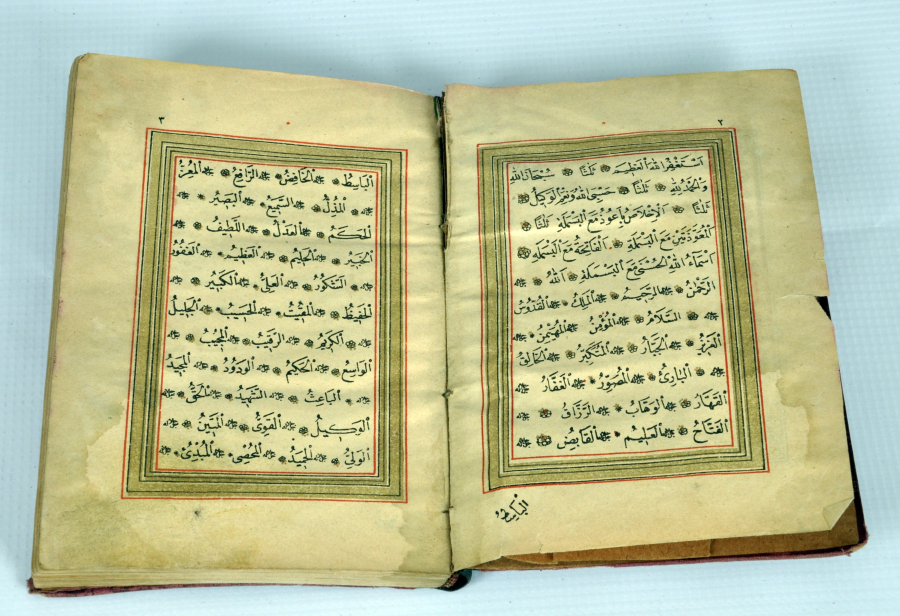 ٢
استغفر الله العظيم ثلثا سبحان الله
والحمد لله ثلثا حسبي الله ونعم الوكيل
ثلثا الاخلاص اعوذ مع البسملة ثلثا
المعوذتين مع البسملة الفاتحة مع البسملة
اسماء الله الحسنى مع البسملة الله
الرحمن الرحيم الملك القدوس
السلام المؤمن المهيمن
العزيز الجبار المتكبر الخالق
البارئ المصور الغفار
القهار الوهاب الرزاق
الفتاح العليم القابض
الباسط
٣
الباسط الخافض الرافع المعز
المذل السميع البصير
الحكم العدل اللطيف
الخبير الحليم العظيم الغفور
الشكور العلي الكبير
الحفيظ المقيت الحسيب الجليل
الكريم الرقيب المجيب
الواسع الحكيم الودود المجيد
الباعث الشهيد الحق
الوكيل القوي المتين
الولي الحميد المحصي المبدئ